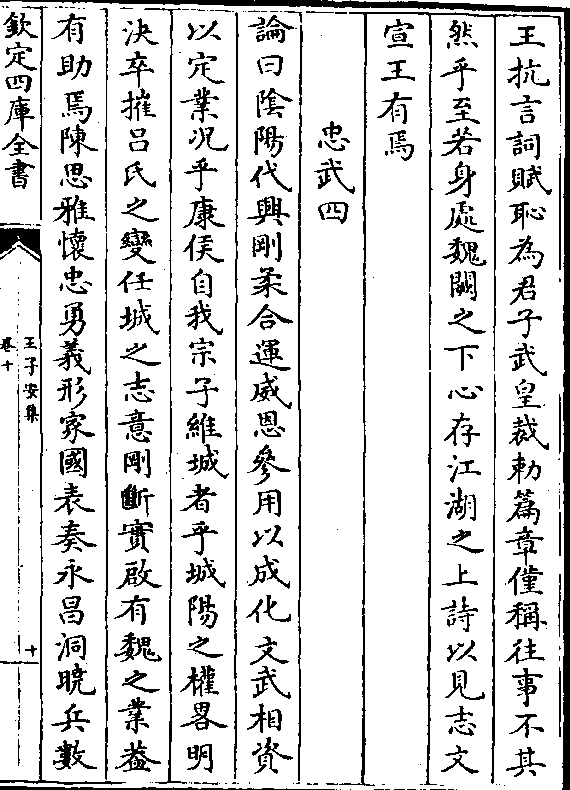 王抗言詞賦恥為君子武皇裁勅篇章僅稱往事不其
然乎至若身處魏闕之下心存江湖之上詩以見志文
宣王有焉
忠武四
論曰陰陽代興剛柔合運威恩參用以成化文武相資
以定業况乎康侯自我宗子維城者乎城陽之權畧明
決卒摧呂氏之變任城之志意剛斷實啟有魏之業葢
有助焉陳思雅懷忠勇義形家國表奏永昌洞曉兵數
欽定四庫全書
王子安集
卷十
十